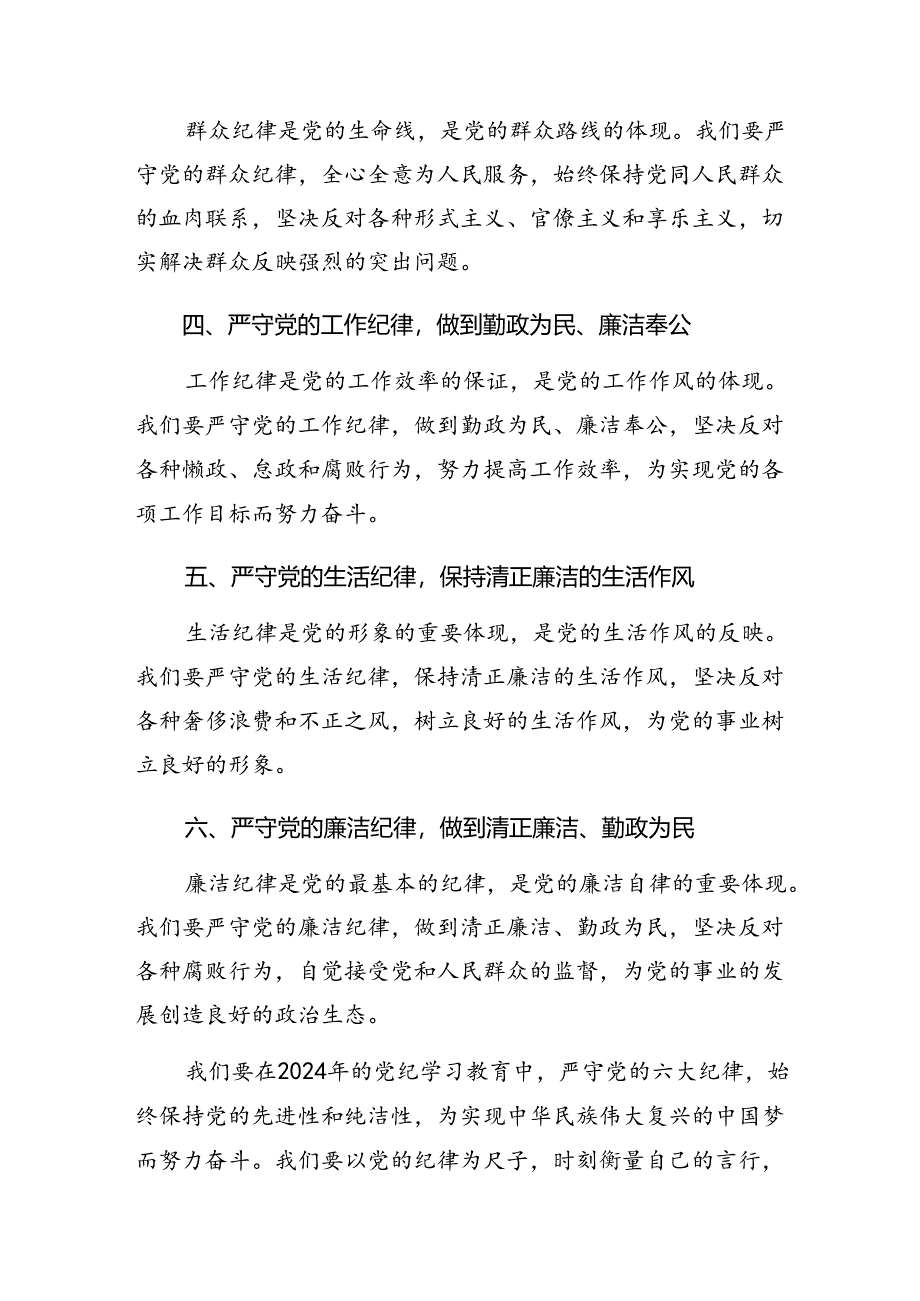 群众纪律是党的生命线，是党的群众路线的体现。我们要严
守党的群众纪律，全心全意为人民服务，始终保持党同人民群众
的血肉联系，坚决反对各种形式主义、官僚主义和享乐主义，切
实解决群众反映强烈的突出问题。
四、严守党的工作纪律，做到勤政为民、廉洁奉公
工作纪律是党的工作效率的保证，是党的工作作风的体现。
我们要严守党的工作纪律，做到勤政为民、廉洁奉公，坚决反对
各种懒政、怠政和腐败行为，努力提高工作效率，为实现党的各
项工作目标而努力奋斗。
五、严守党的生活纪律，保持清正廉洁的生活作风
生活纪律是党的形象的重要体现，是党的生活作风的反映。
我们要严守党的生活纪律，保持清正廉洁的生活作风，坚决反对
各种奢侈浪费和不正之风，树立良好的生活作风，为党的事业树
立良好的形象。
六、严守党的廉洁纪律，做到清正廉洁、勤政为民
廉洁纪律是党的最基本的纪律，是党的廉洁自律的重要体现。
我们要严守党的廉洁纪律，做到清正廉洁、勤政为民，坚决反对
各种腐败行为，自觉接受党和人民群众的监督，为党的事业的发
展创造良好的政治生态。
我们要在2024年的党纪学习教育中，严守党的六大纪律，始
终保持党的先进性和纯洁性，为实现中华民族伟大复兴的中国梦
而努力奋斗。我们要以党的纪律为尺子，时刻衡量自己的言行，